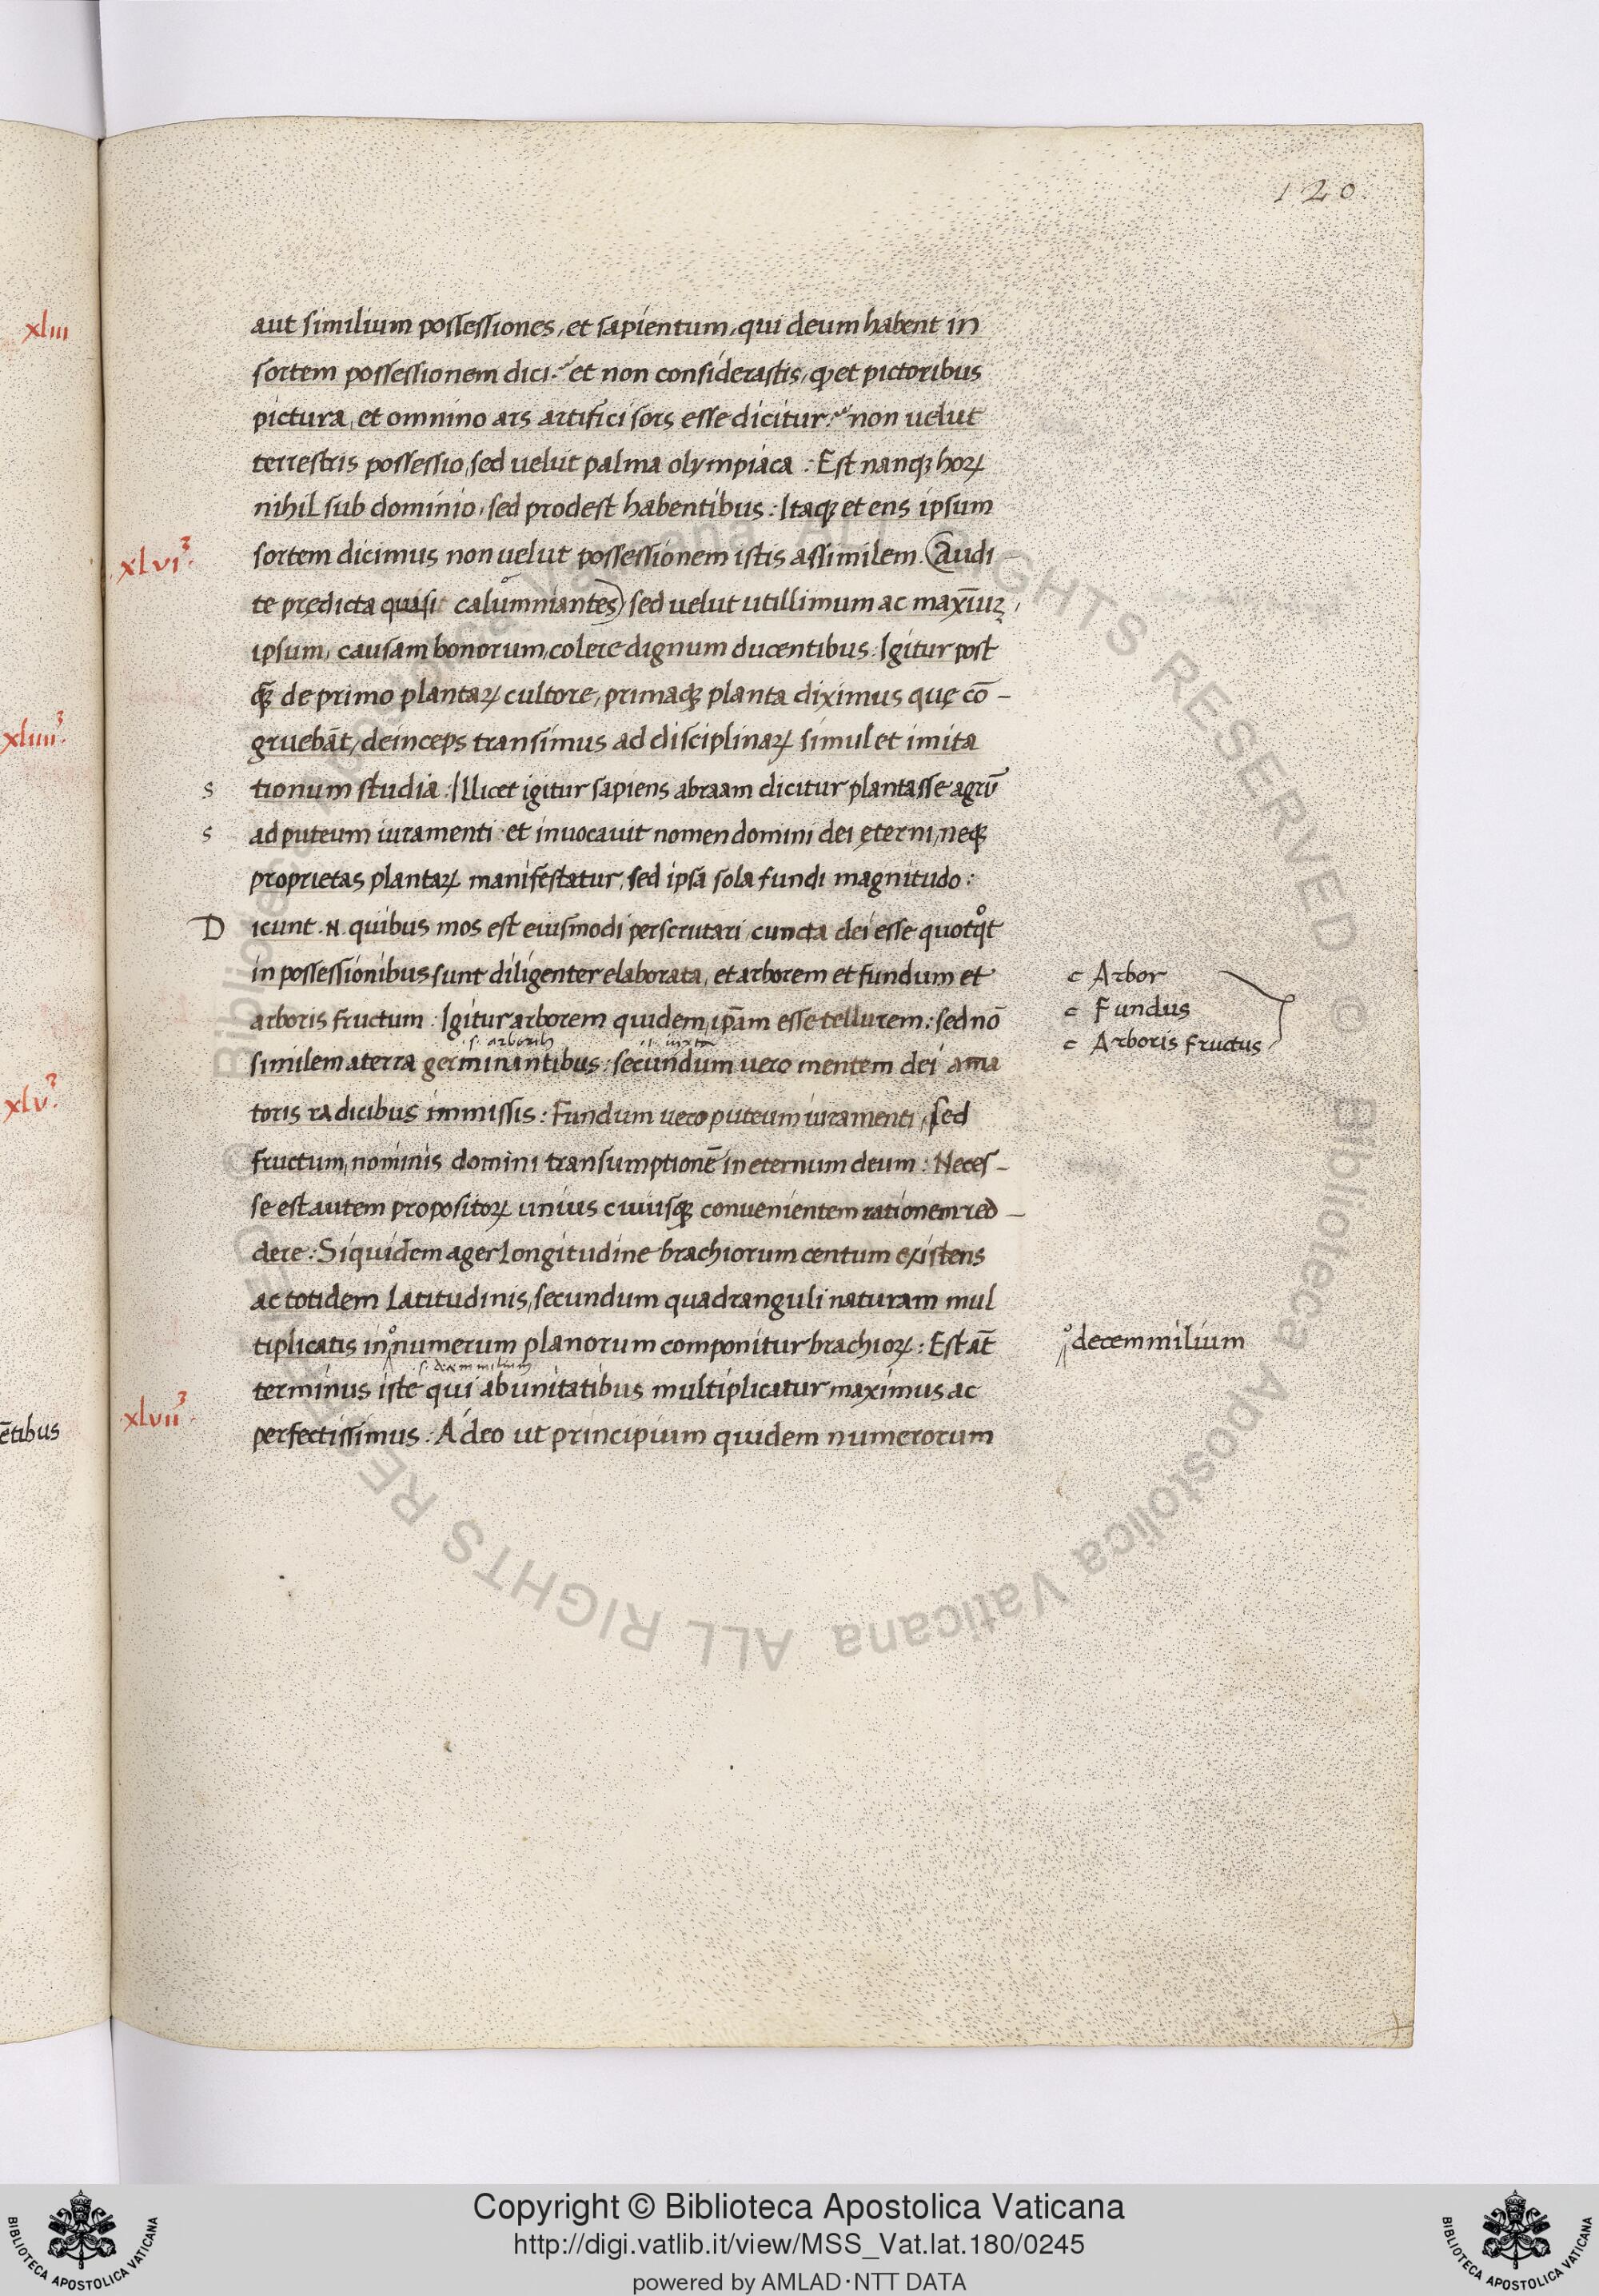 120
xliii
aut similium possessiones, et sapientum, qui deum habent in
sortem possessionem dici? et non considerastis, ꝙ et pictoribus
pictura, et omnino ars artifici sors esse dicitur? non uelut
terrestris possessio, sed uelut palma olympiaca : Est nanqꝫ hoꝝ
nihil sub dominio, sed prodest habentibus : Itaqꝫ et ens ipsum
xlvi
sortem dicimus non uelut possessionem istis assimilem. (Audi
te prędicta quasi calumniantes) sed uelut utillimum ac maxīuꝫ,
ipsum, causam bonorum, colere dignum ducentibus : Igitur post
qꝫ̄ de primo plantaꝝ cultore, primaqꝫ planta diximus quę cō-
xliiii
gruebāt, deinceps transimus ad disciplinaꝝ simul et imita
s tionum studia : Illicet igitur sapiens abraam dicitur plantasse agrū
s ad puteum iuramenti et inuocauit nomen domini dei ęterni, neqꝫ
proprietas plantaꝝ manifestatur, sed ipsa sola fundi magnitudo :
Dicunt .N. quibus mos est eiusmodi perscrutari cuncta dei esse quotqͦt
in possessionibus sunt diligenter elaborata, et arborem et fundum et
c Arbor
c Fundus
c Arboris fructus
arboris fructum : Igitur arborem quidem, ip̄am esse tellurem : sed nō
.s. arborib .i. iuxta
similem a terra germinantibus : secundum uero mentem dei ama
xlv
toris radicibus immissis : Fundum uero puteum iuramenti, sed
fructum, nominis domini transumptionē in eternum deum : Neces-
se est autem propositoꝝ unius cuiusqꝫ conuenientem rationem red-
dere : Siquidem ager longitudine brachiorum centum existens
ac totidem Latitudinis, secundum quadranguli naturam mul
tiplicatis in numerum planorum componitur brachioꝝ : Est at̄
decem milium
.s. decem milium
terminus iste qui ab unitatibus multiplicatur maximus ac
xlvii
perfectissimus : Adeo ut principium quidem numerorum
ētibus
© Biblioteca Apostolica Vaticana ALL RIGHTS RESERVED © Biblioteca Apostolica Vaticana ALL RIGHTS RESERVED
Copyright © Biblioteca Apostolica Vaticana
http://digi.vatlib.it/view/MSS_Vat.lat.180/0245
powered by AMLAD·NTT DATA
BIBLIOTECA APOSTOLICA VATICANA
BIBLIOTECA APOSTOLICA VATICANA